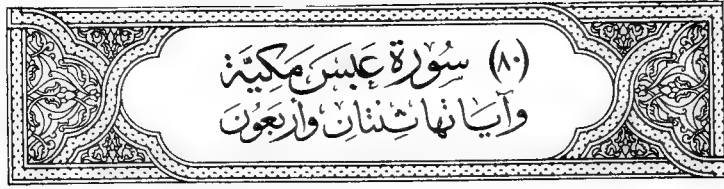 (٨٠) سُورَةُ عَبَسَ مَكِيَّة
وَآيَاتُهَا ثِنْتَانِ وَأَرْبَعُونَ